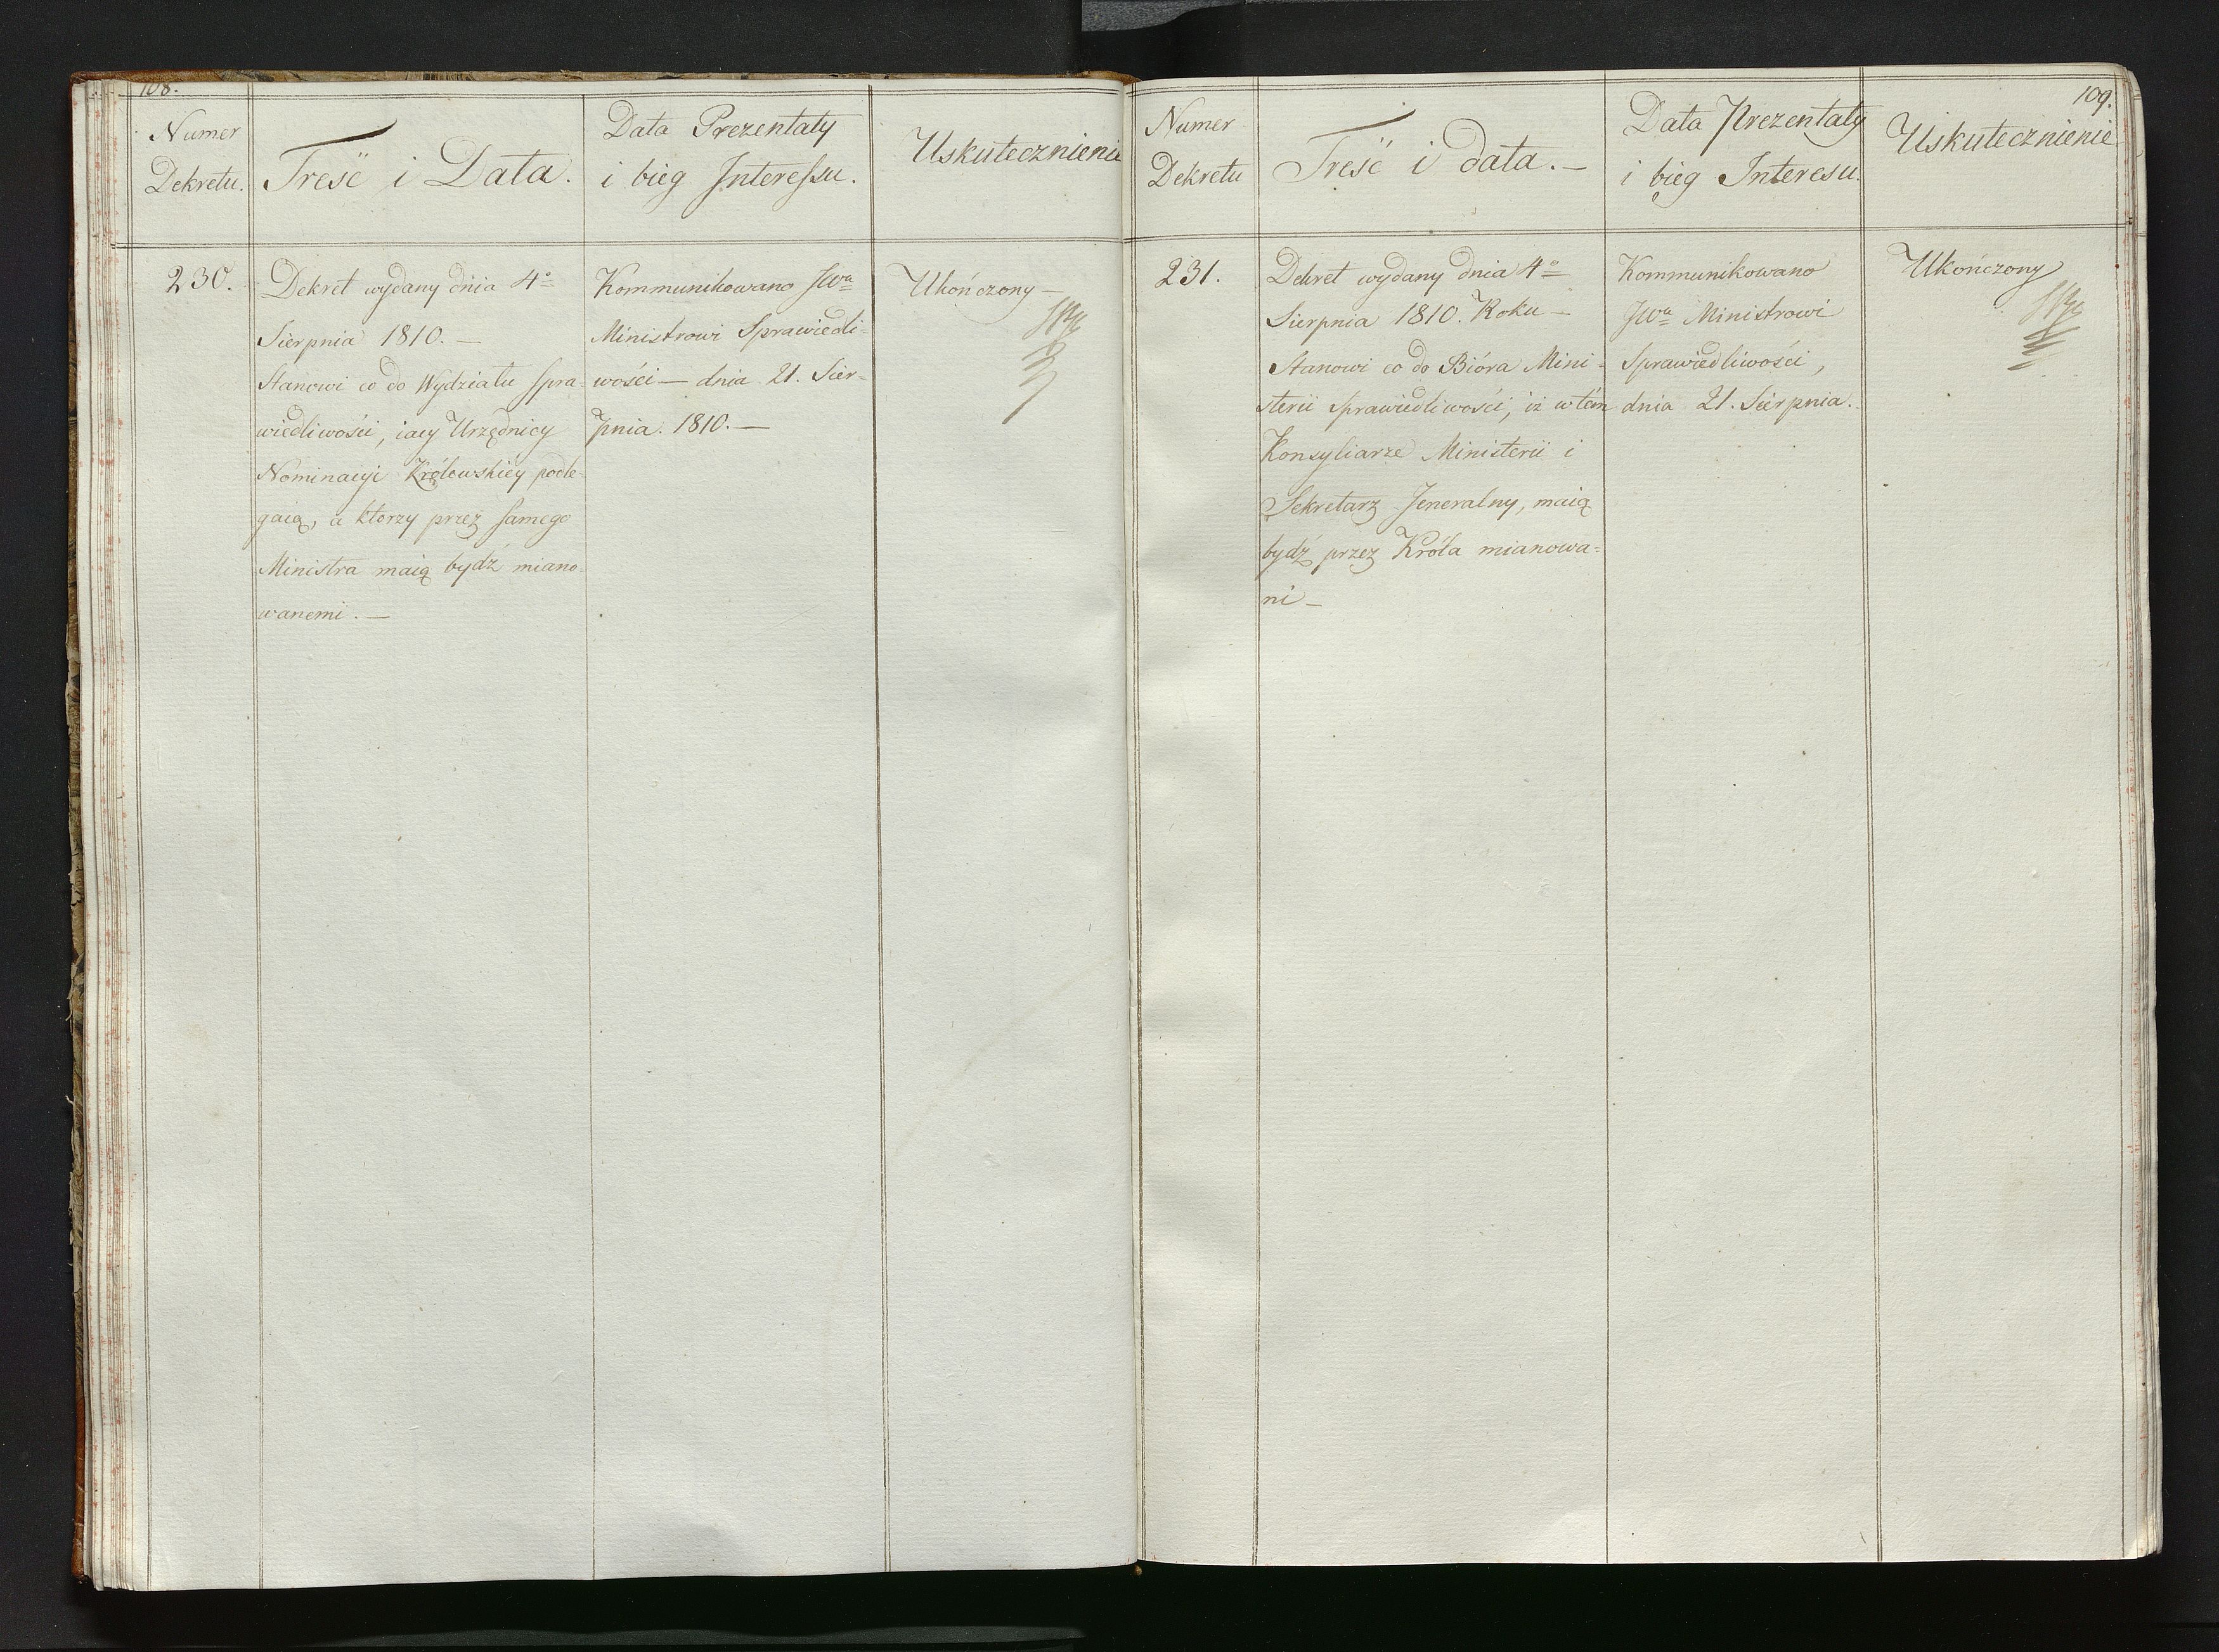 108.
Numer
Dekretu.
Treść i Data.
Data Prezentaty
i bieg Interessu.
Uskutecznienie
230.
Dekret wydany dnia 4º
Sierpnia 1810. —
Stanowi co do Wydziału Spra-
wiedliwości, iacy Urzędnicy
Nominacyi Królewskiéy podle-
gaią, a ktorzy przez samego
Ministra maią bydź miano-
wanemi. —
Kommunikowano JWu
Ministrowi Sprawiedli-
wości — dnia 21. Sier-
pnia. 1810. —
Ukończony —
109.
Numer
Dekretu
Treść i data. —
Data Prezentaty
i bieg Interesu.
Uskutecznienie
231.
Dekret wydany dnia 4º
Sierpnia 1810. Roku —
Stanowi co do Bióra Mini-
sterii Sprawiedliwości, iż w tém
Konsyliarze Ministerii i
Sekretarz Jeneralny, maią
bydź przez Króla mianowa-
ni —
Kommunikowano
JWu Ministrowi
Sprawiedliwości,
dnia 21. Sierpnia.
Ukończony